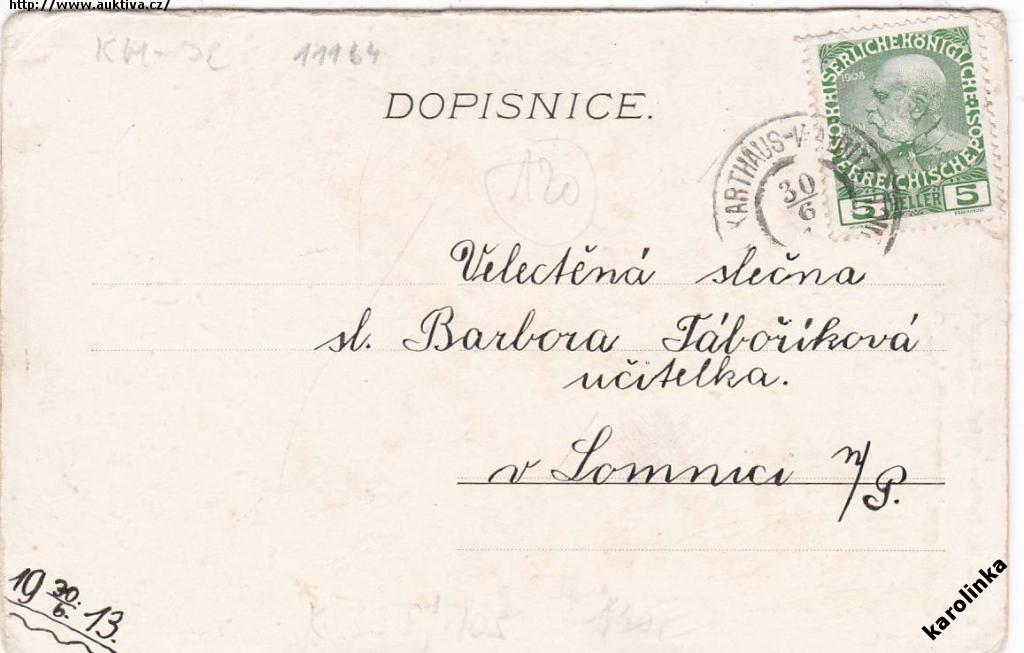 http://www.auktiva.cz/
11164
DOPISNICE.
KAISERLICHE KÖNIGLICHE
1908
ÖSTERREICHISCHE POST
5 HELLER 5
KARTHAUS-
30
6
120
Velectěná slečna
sl. Barbora Tábоříková
učitelka.
v Lomnici n/P.
19 30./6. 13.
karolinka